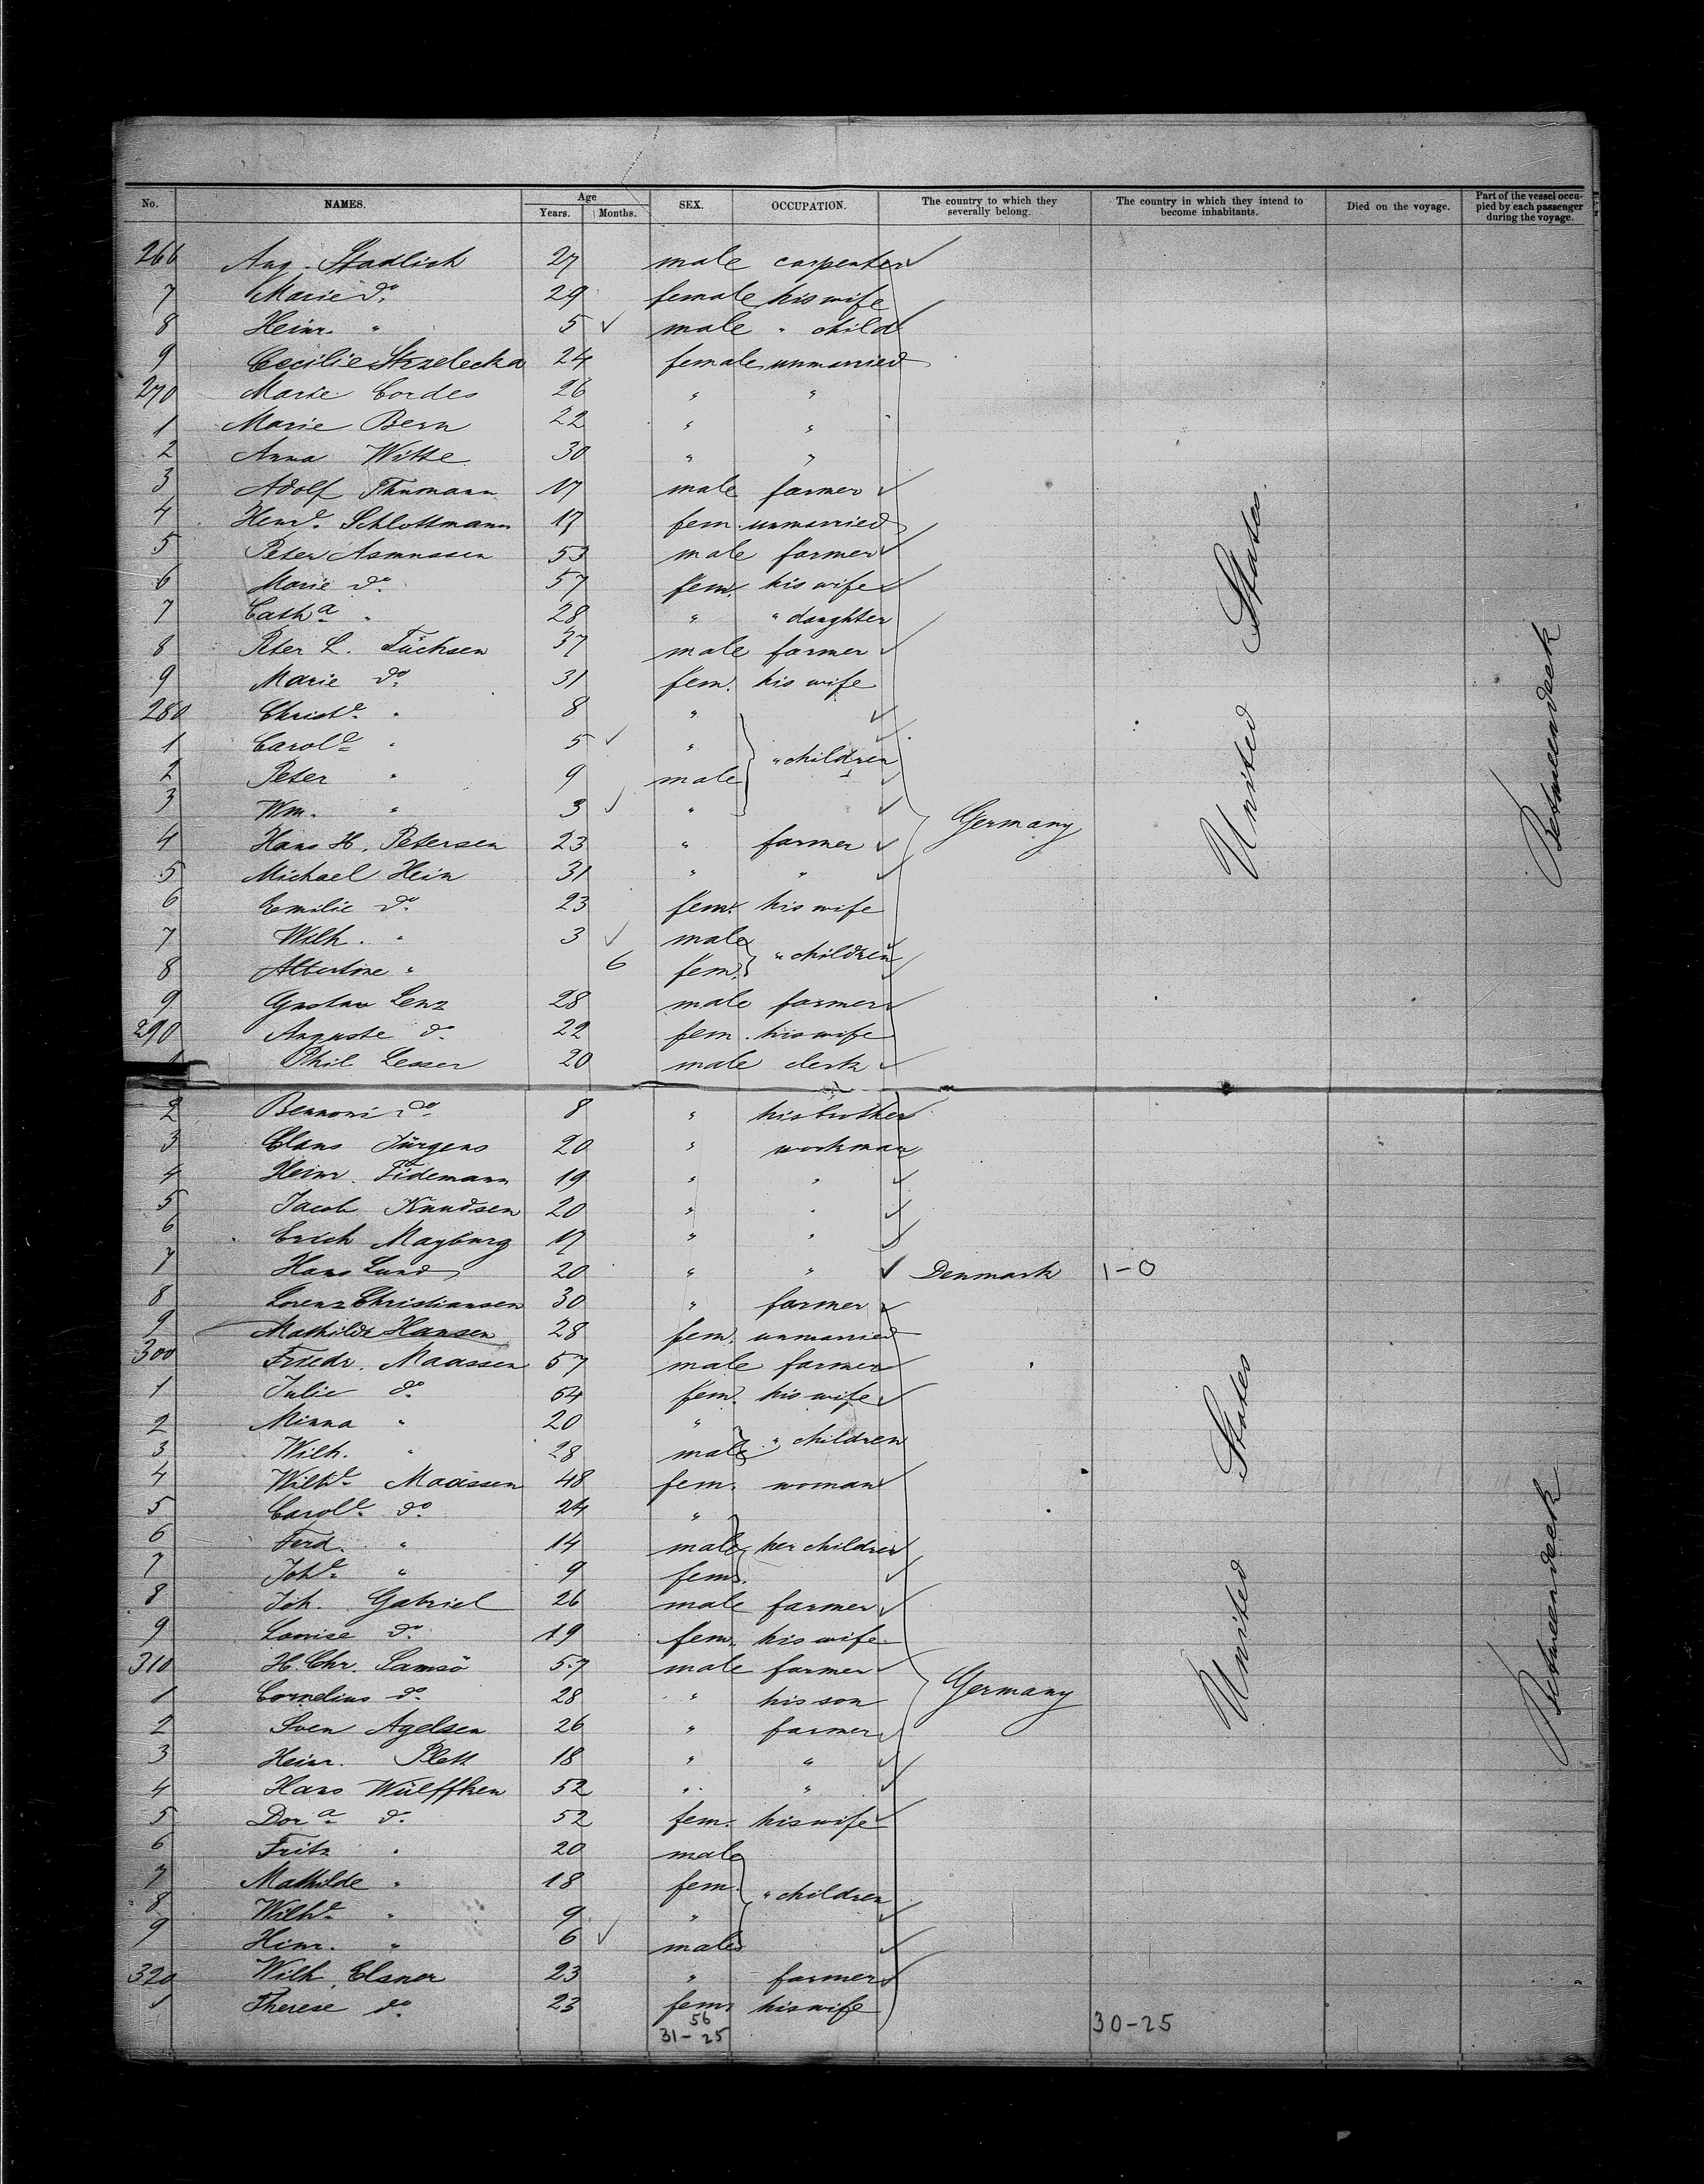 No. NAMES. Age Years. Months. SEX. OCCUPATION. The country to which they severally belong. The country in which they intend to become inhabitants. Died on the voyage. Part of the vessel occupied by each passenger during the voyage.
266 Aug. Stadlich 27 male carpenter
7 Marie do. 29 female his wife
8 Heinr. " 5 male " child
9 Cecilie Strzelecka 24 female unmarried
270 Marie Cordes 26 " "
1 Marie Bern 22 " "
2 Anna Witte 30 " "
3 Adolf Thumann 17 male farmer
4 Henr.e Schlottmann 17 fem. unmarried
5 Peter Asmussen 53 male farmer
6 Marie do. 57 fem. his wife
7 Cath.a " 28 " " daughter
8 Peter L. Tüchsen 37 male farmer
9 Marie do. 31 fem. his wife
280 Christ.e " 8 "
1 Carol.e " 5 " " children
2 Peter " 9 male
3 Wm. " 3 " Germany
4 Hans H. Petersen 23 " farmer
5 Michael Hein 31 " "
6 Emilie do. 23 fem. his wife
7 Wilh. " 3 male " children
8 Albertine " 6 fem.
9 Gustav Lenz 28 male farmer
290 Auguste do. 22 fem. his wife
1 Phil Lesser 20 male clerk
2 Bennoni do. 8 " his brother
3 Claus Jürgens 20 " workman
4 Heinr. Tidemann 19 " "
5 Jacob Knudsen 20 " "
6 Erich Mayburg 17 " "
7 Hans Lund 20 " " Denmark 1-0
8 Lorenz Christiansen 30 " farmer
9 Mathilde Hansen 28 fem. unmarried
300 Friedr. Maassen 57 male farmer
1 Julie do. 64 fem. his wife
2 Minna " 20 " " children
3 Wilh. " 28 male
4 Wilh.e Maassen 48 fem. woman
5 Carol.e do. 24 "
6 Ferd. " 14 male her children
7 Joh.e " 9 fem.
8 Joh. Gabriel 26 male farmer
9 Louise do. 19 fem. his wife
310 H. Chr. Samsö 57 male farmer Germany
1 Cornelius do. 28 " his son
2 Sven Agelsen 26 " farmer
3 Heinr. Plett 18 " "
4 Hans Wülffken 52 " "
5 Dor.a do. 52 fem. his wife
6 Fritz " 20 male
7 Mathilde " 18 fem. " children
8 Wilh.e " 9 "
9 Hinr. " 6 male
320 Wilh. Elsner 23 " farmer
1 Therese do. 23 fem. his wife
56
31-25 30-25
United States
Betweendeck
United States
Betweendeck